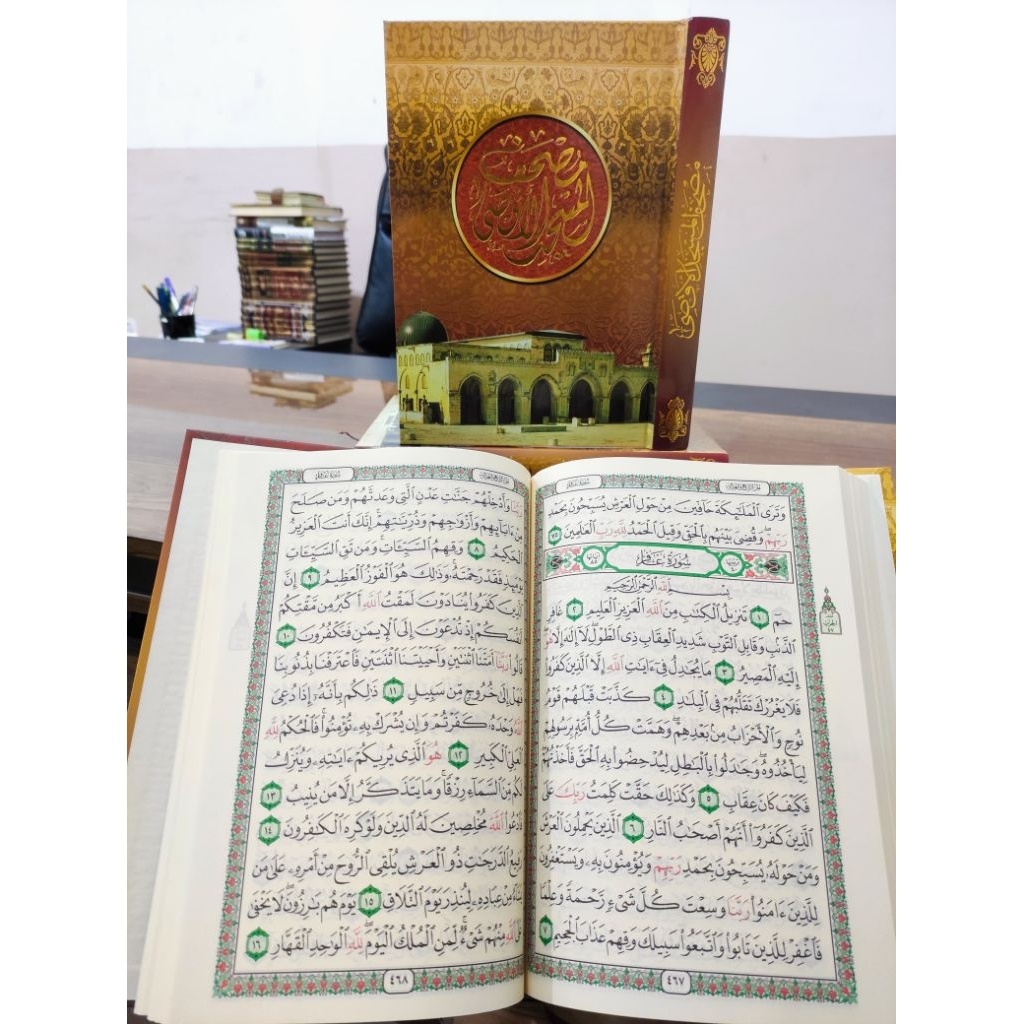 مصحف
المسجد الأقصى
مصحف المسجد الأقصى
وَتَرَى ٱلْمَلَٰٓئِكَةَ حَآفِّينَ مِنْ حَوْلِ ٱلْعَرْشِ يُسَبِّحُونَ بِحَمْدِ
رَبِّهِمْ ۖ وَقُضِىَ بَيْنَهُم بِٱلْحَقِّ وَقِيلَ ٱلْحَمْدُ لِلَّهِ رَبِّ ٱلْعَٰلَمِينَ ٧٥
سُورَةُ غَافِرٍ
بِسْمِ ٱللَّهِ ٱلرَّحْمَٰنِ ٱلرَّحِيمِ
حمٓ ١ تَنزِيلُ ٱلْكِتَٰبِ مِنَ ٱللَّهِ ٱلْعَزِيزِ ٱلْعَلِيمِ ٢ غَافِرِ
ٱلذَّنۢبِ وَقَابِلِ ٱلتَّوْبِ شَدِيدِ ٱلْعِقَابِ ذِى ٱلطَّوْلِ ۖ لَآ إِلَٰهَ إِلَّا هُوَ ۖ
إِلَيْهِ ٱلْمَصِيرُ ٣ مَا يُجَٰدِلُ فِىٓ ءَايَٰتِ ٱللَّهِ إِلَّا ٱلَّذِينَ كَفَرُوا۟
فَلَا يَغْرُرْكَ تَقَلُّبُهُمْ فِى ٱلْبِلَٰدِ ٤ كَذَّبَتْ قَبْلَهُمْ قَوْمُ
نُوحٍ وَٱلْأَحْزَابُ مِنۢ بَعْدِهِمْ ۖ وَهَمَّتْ كُلُّ أُمَّةٍۭ بِرَسُولِهِمْ
لِيَأْخُذُوهُ ۖ وَجَٰدَلُوا۟ بِٱلْبَٰطِلِ لِيُدْحِضُوا۟ بِهِ ٱلْحَقَّ فَأَخَذْتُهُمْ ۖ
فَكَيْفَ كَانَ عِقَابِ ٥ وَكَذَٰلِكَ حَقَّتْ كَلِمَتُ رَبِّكَ عَلَى
ٱلَّذِينَ كَفَرُوٓا۟ أَنَّهُمْ أَصْحَٰبُ ٱلنَّارِ ٦ ٱلَّذِينَ يَحْمِلُونَ ٱلْعَرْشَ
وَمَنْ حَوْلَهُۥ يُسَبِّحُونَ بِحَمْدِ رَبِّهِمْ وَيُؤْمِنُونَ بِهِۦ وَيَسْتَغْفِرُونَ
لِلَّذِينَ ءَامَنُوا۟ رَبَّنَا وَسِعْتَ كُلَّ شَىْءٍ رَّحْمَةً وَعِلْمًا
فَٱغْفِرْ لِلَّذِينَ تَابُوا۟ وَٱتَّبَعُوا۟ سَبِيلَكَ وَقِهِمْ عَذَابَ ٱلْجَحِيمِ ٧
٤٦٧
رَبَّنَا وَأَدْخِلْهُمْ جَنَّٰتِ عَدْنٍ ٱلَّتِى وَعَدتَّهُمْ وَمَن صَلَحَ
مِنْ ءَابَآئِهِمْ وَأَزْوَٰجِهِمْ وَذُرِّيَّٰتِهِمْ ۚ إِنَّكَ أَنتَ ٱلْعَزِيزُ
ٱلْحَكِيمُ ٨ وَقِهِمُ ٱلسَّيِّـَٔاتِ ۚ وَمَن تَقِ ٱلسَّيِّـَٔاتِ
يَوْمَئِذٍ فَقَدْ رَحِمْتَهُۥ ۚ وَذَٰلِكَ هُوَ ٱلْفَوْزُ ٱلْعَظِيمُ ٩ إِنَّ
ٱلَّذِينَ كَفَرُوا۟ يُنَادَوْنَ لَمَقْتُ ٱللَّهِ أَكْبَرُ مِن مَّقْتِكُمْ
أَنفُسَكُمْ إِذْ تُدْعَوْنَ إِلَى ٱلْإِيمَٰنِ فَتَكْفُرُونَ ١٠
قَالُوا۟ رَبَّنَآ أَمَتَّنَا ٱثْنَتَيْنِ وَأَحْيَيْتَنَا ٱثْنَتَيْنِ فَٱعْتَرَفْنَا بِذُنُوبِنَا
فَهَلْ إِلَىٰ خُرُوجٍ مِّن سَبِيلٍ ١١ ذَٰلِكُم بِأَنَّهُۥٓ إِذَا دُعِىَ
ٱللَّهُ وَحْدَهُۥ كَفَرْتُمْ ۖ وَإِن يُشْرَكْ بِهِۦ تُؤْمِنُوا۟ ۚ فَٱلْحُكْمُ لِلَّهِ
ٱلْعَلِىِّ ٱلْكَبِيرِ ١٢ هُوَ ٱلَّذِى يُرِيكُمْ ءَايَٰتِهِۦ وَيُنَزِّلُ
لَكُم مِّنَ ٱلسَّمَآءِ رِزْقًا ۚ وَمَا يَتَذَكَّرُ إِلَّا مَن يُنِيبُ ١٣
فَٱدْعُوا۟ ٱللَّهَ مُخْلِصِينَ لَهُ ٱلدِّينَ وَلَوْ كَرِهَ ٱلْكَٰفِرُونَ ١٤
رَفِيعُ ٱلدَّرَجَٰتِ ذُو ٱلْعَرْشِ يُلْقِى ٱلرُّوحَ مِنْ أَمْرِهِۦ عَلَىٰ مَن
يَشَآءُ مِنْ عِبَادِهِۦ لِيُنذِرَ يَوْمَ ٱلتَّلَاقِ ١٥ يَوْمَ هُم بَٰرِزُونَ ۖ لَا يَخْفَىٰ
عَلَى ٱللَّهِ مِنْهُمْ شَىْءٌ ۚ لِّمَنِ ٱلْمُلْكُ ٱلْيَوْمَ ۖ لِلَّهِ ٱلْوَٰحِدِ ٱلْقَهَّارِ ١٦
٤٦٨